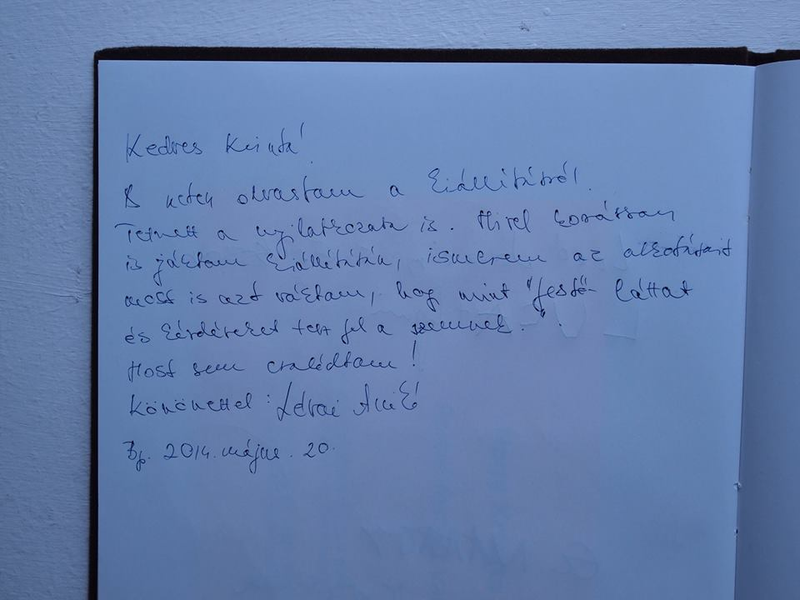 Kedves Kinita!
A neten olvastam a kiállításról.
Tetszett a nyilatkozata is. Mivel korábban
is jártam kiállításán, ismerem az alkotásait
most is azt vártam, hogy mint "festő- láttat
és kérdéseket tesz fel a szemnek.".
Most sem csalódtam!
Köszönettel: Lévai
Bp. 2014. május. 20.